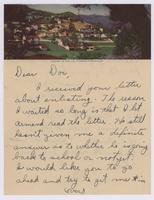 Dear Dor,
I received your letter
about enlisting. The reason
I waited so long is that I let
Armand read the letter. He still
hasn't given me a definite
answer as to whether he is going
back to school or not yet.
I would like you to go
ahead and try to get me in,